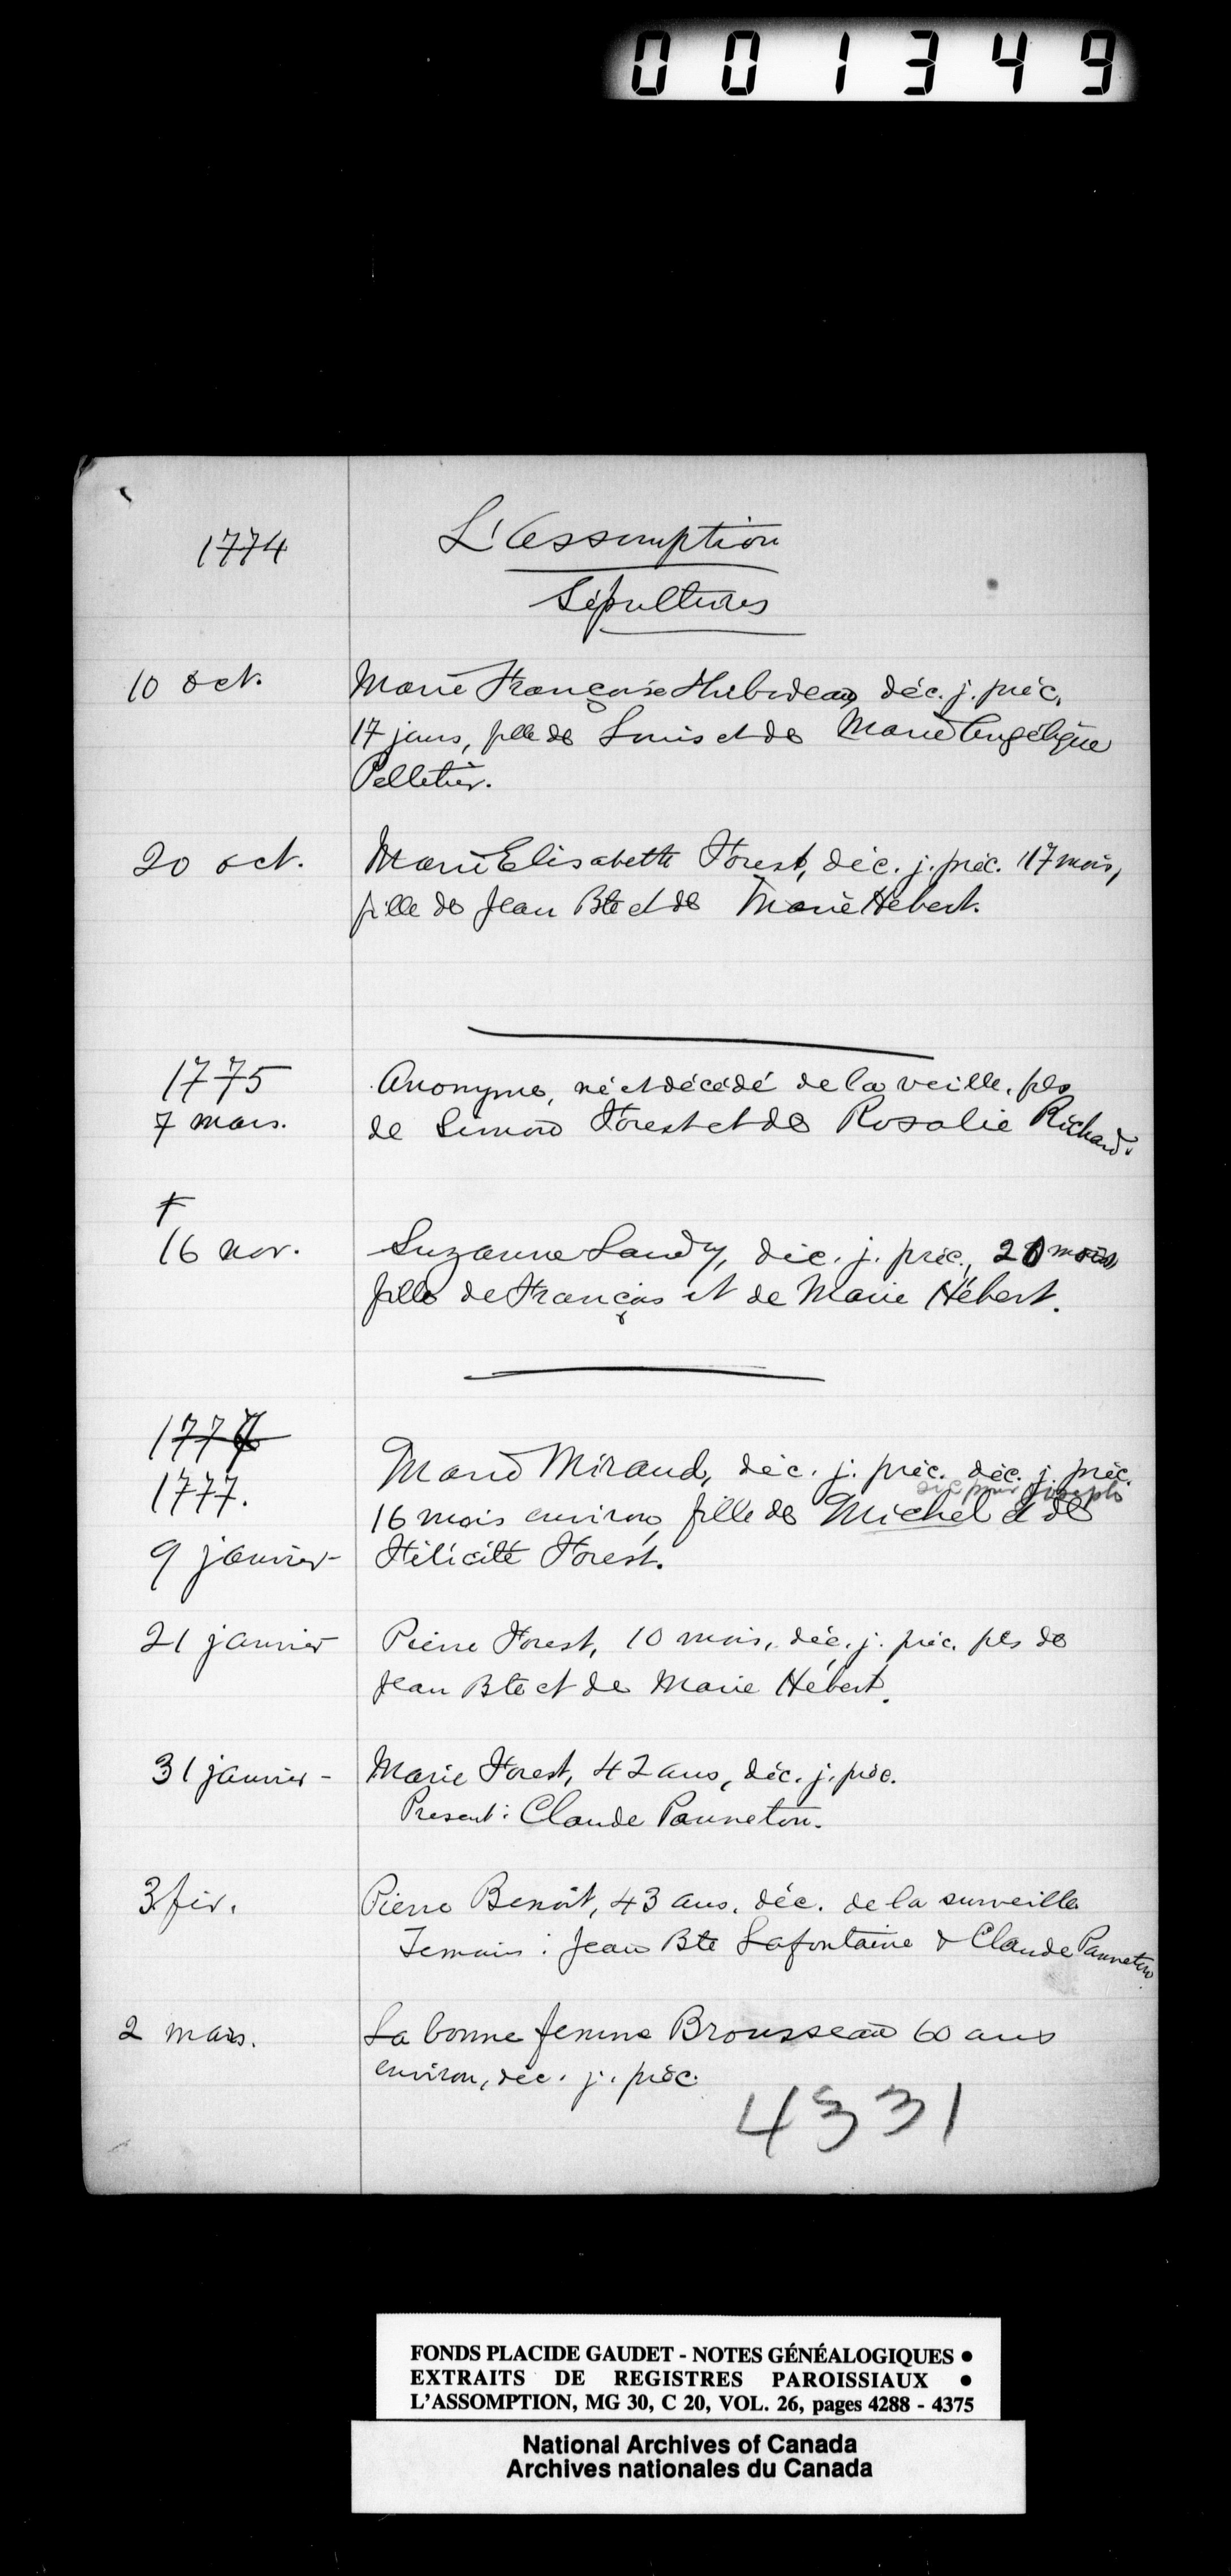 001349
1774
L'Assomption
Sépultures
10 oct.
Marie Françoise Thibodeau, déc. j. préc.
17 jours, fille de Louis et de Marie Angélique
Pelletier.
20 oct.
Marie Elisabeth Forest, déc. j. préc. 17 mois,
fille de Jean Bte et de Marie Hébert.
1775
7 mars.
Anonyme, né et décédé de la veille, fils
de Simon Forest et de Rosalie Richard.
16 nov.
Suzanne Landry, déc. j. préc., mois
fille de François et de Marie Hébert.
1777.
9 janvier-
Marie Miraud, déc. j. préc. déc. j. préc.
sic pour Joseph
16 mois environ, fille de Michel et de
Félicité Forest.
21 janvier
Pierre Forest, 10 mois, déc. j. préc. fils de
Jean Bte et de Marie Hébert.
31 janvier -
Marie Forest, 42 ans, déc. j. préc.
Present: Claude Panneton.
3 fév.
Pierre Benoît, 43 ans, déc. de la surveille
Temoins : Jean Bte Lafontaine & Claude Panneton
2 mars.
La bonne femme Brousseau 60 ans
environ, déc. j. préc.
4331
FONDS PLACIDE GAUDET - NOTES GÉNÉALOGIQUES •
EXTRAITS DE REGISTRES PAROISSIAUX •
L'ASSOMPTION, MG 30, C 20, VOL. 26, pages 4288 - 4375
National Archives of Canada
Archives nationales du Canada